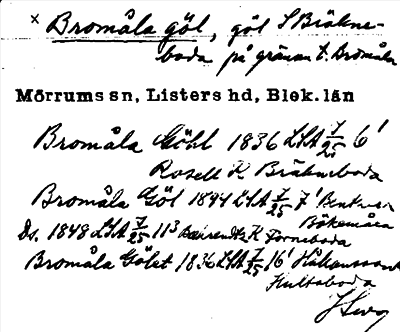 × Bromåla göl, göl S Bräkne-
boda på gränsen t. Bromåla
Mörrums sn, Listers hd, Blek. län
Bromåla Göhl 1836 LSA 7/25 6'
Rosell K. Bräkneboda
Bromåla Göl 1844 LSA 7/25 7'
Bökemåla
Ds. 1848 LSA 7/25 11³ K Farneboda
Bromåla Gölet 1836 LSA 7/25 16' Håkansson
Hultaboda